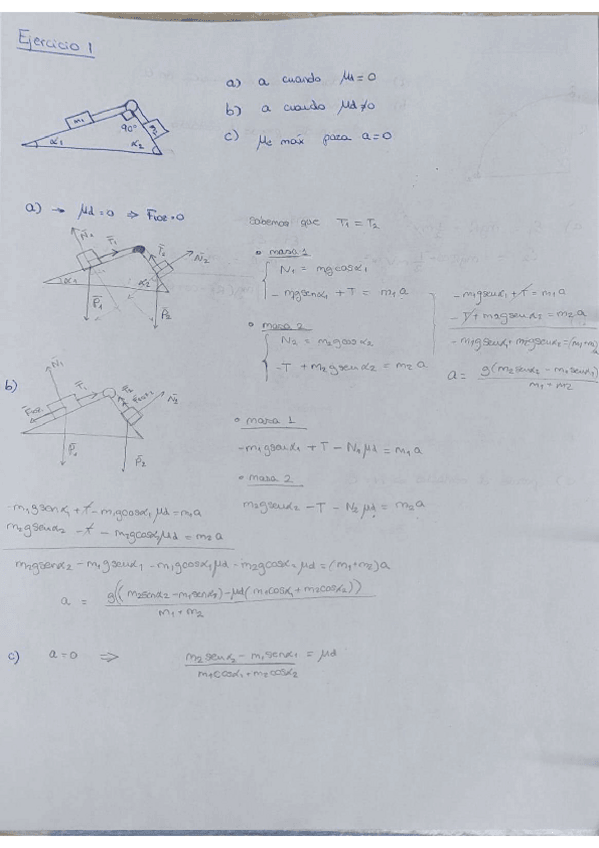 Ejercicio 1
a) a cuando μd = 0
b) a cuando μd ≠ 0
c) μe máx para a = 0
m1
m2
90°
α1
α2
a) → μd = 0 ⇒ Froz = 0
Sabemos que T1 = T2
N1
T1
T2
N2
α1
α2
P1
P2
• masa 1
N1 = mgcosα1
- m1gsenα1 + T = m1a
• masa 2
N2 = m2gcosα2
-T + m2gsenα2 = m2a
-m1gsenα1 + T = m1a
-T + m2gsenα2 = m2a
-m1gsenα1 + m2gsenα2 = (m1+m2)a
a = g(m2senα2 - m1senα1)
m1 + m2
b)
N1
T1
Froz1
N2
P1
P2
• masa 1
-m1gsenα1 + T - N1μd = m1a
• masa 2
m2gsenα2 - T - N2μd = m2a
-m1gsenα1 + T - m1gcosα1μd = m1a
m2gsenα2 - T - m2gcosα2μd = m2a
m2gsenα2 - m1gsenα1 - m1gcosα1μd - m2gcosα2μd = (m1+m2)a
a = g((m2senα2 - m1senα1) - μd(m1cosα1 + m2cosα2))
m1 + m2
c) a = 0 ⇒ m2senα2 - m1senα1 = μd
m1cosα1 + m2cosα2